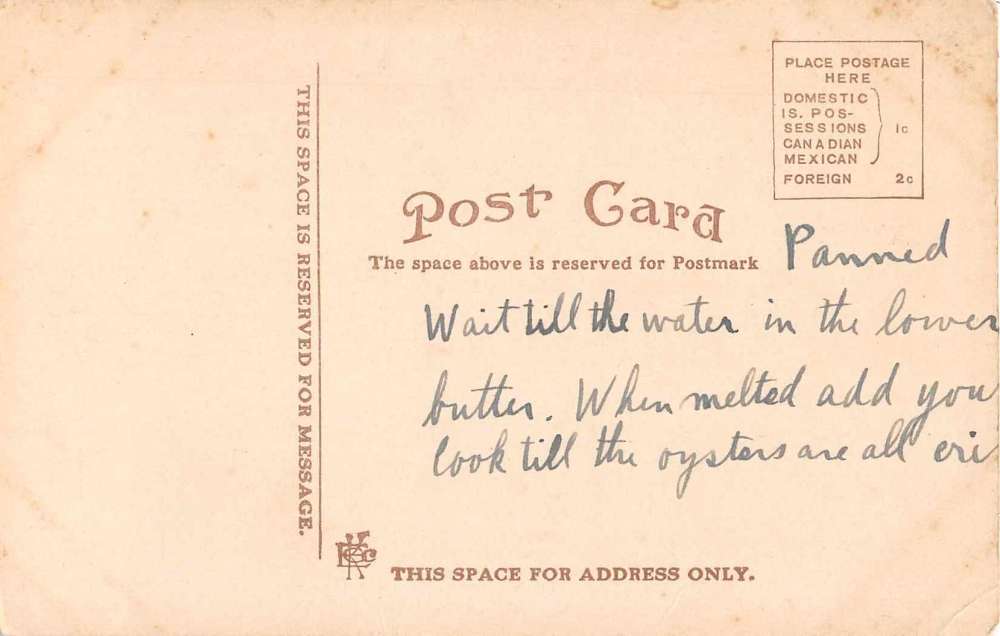 THIS SPACE IS RESERVED FOR MESSAGE.
PLACE POSTAGE
HERE
DOMESTIC
IS. POS-
SESSIONS
CANADIAN
MEXICAN
1c
FOREIGN 2c
Post Card
The space above is reserved for Postmark
Panned
Wait till the water in the lower
butter. When melted add you
cook till the oysters are all cri
THIS SPACE FOR ADDRESS ONLY.